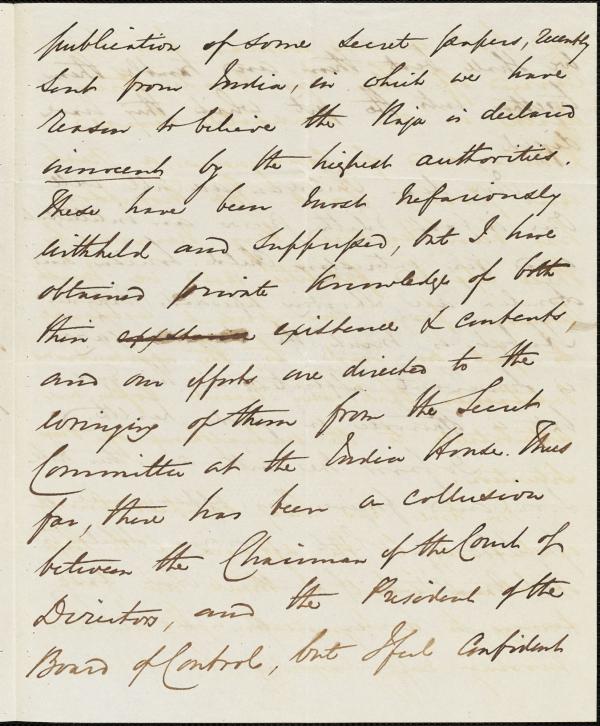 publication of some secret papers, recently
sent from India, in which we have
reason to believe the Raja is declared
innocent by the highest authorities.
These have been most nefariously
withheld and suppressed, but I have
obtained private knowledge of both
their existence & contents,
and our efforts are directed to the
wringing of them from the Secret
Committee at the India House. Thus
far, there has been a collusion
between the Chairman of the Court of
Directors, and the President of the
Board of Control, but I feel confident